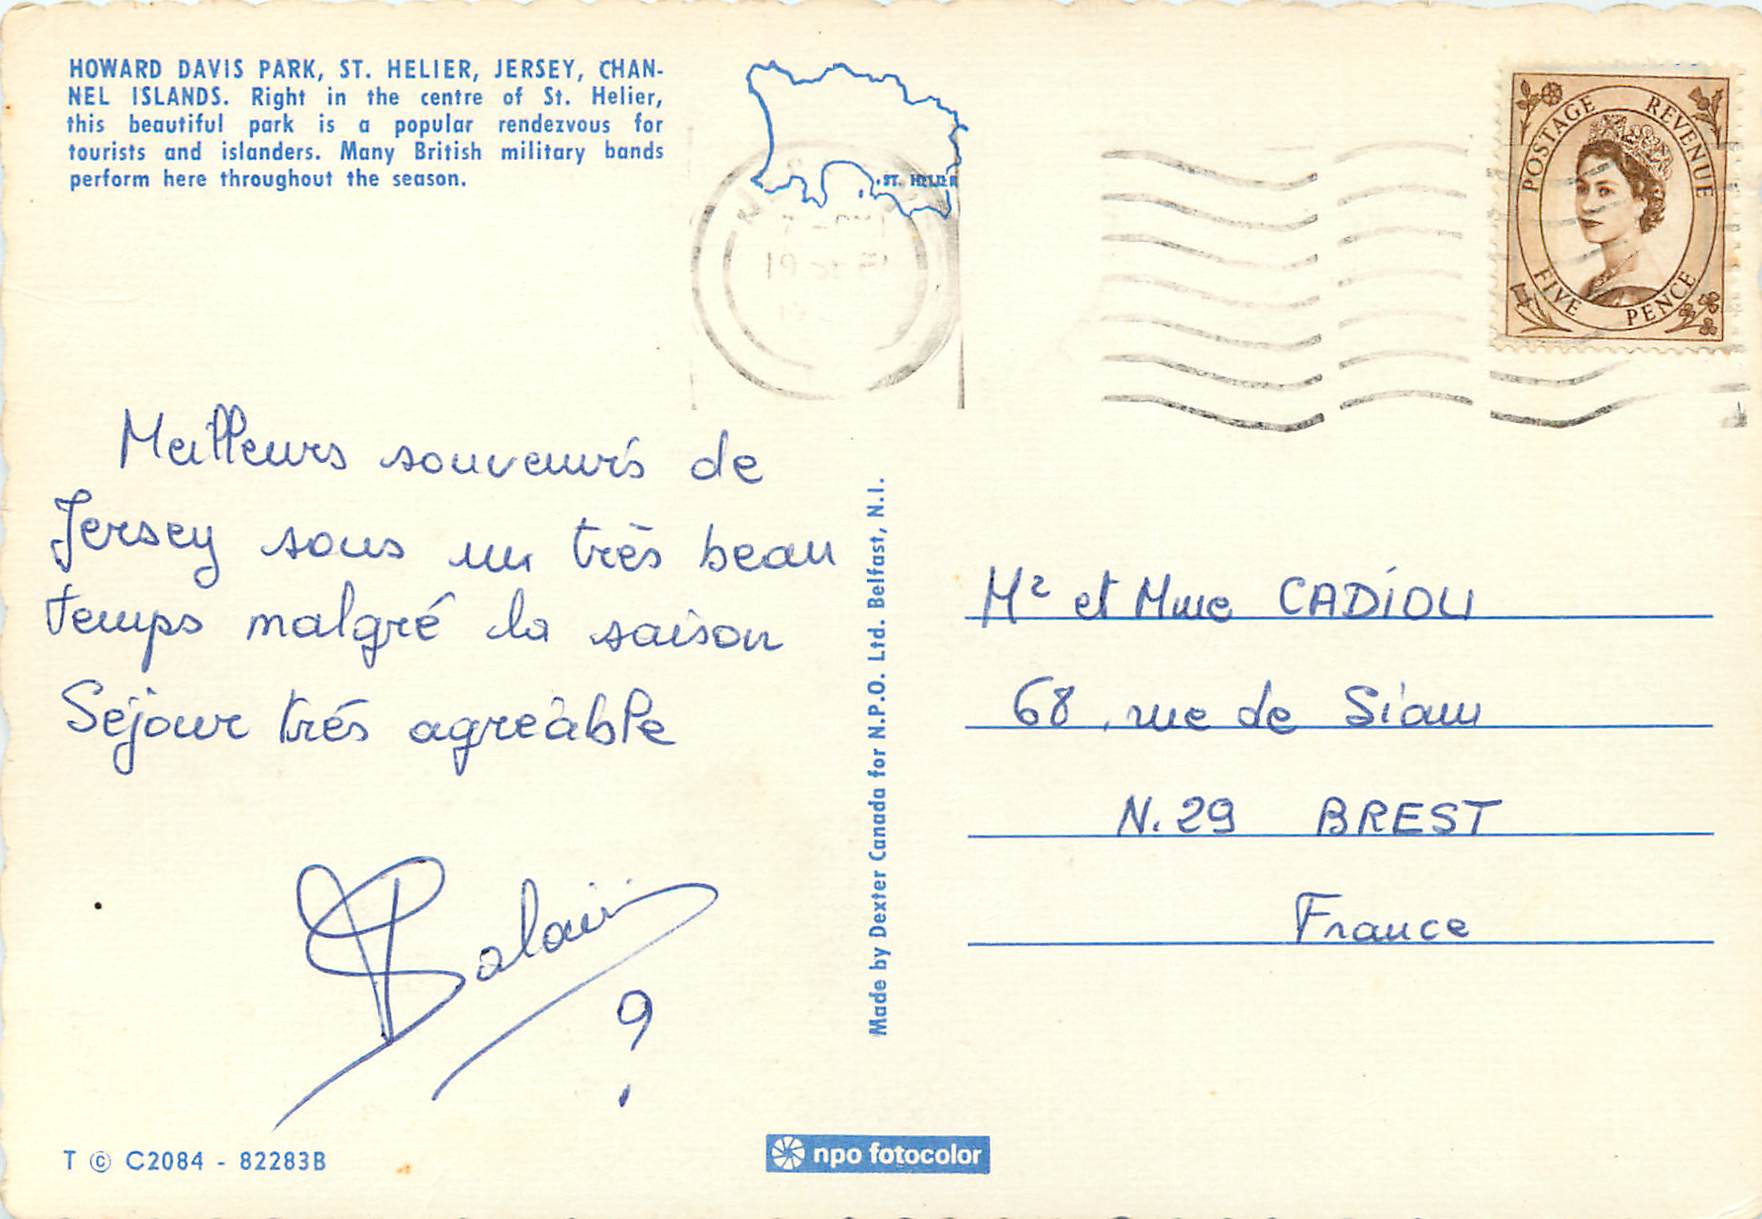 HOWARD DAVIS PARK, ST. HELIER, JERSEY, CHAN-
NEL ISLANDS. Right in the centre of St. Helier,
this beautiful park is a popular rendezvous for
tourists and islanders. Many British military bands
perform here throughout the season.
ST. HELIER
POSTAGE REVENUE
FIVE PENCE
Meilleurs souvenirs de
Jersey sous un très beau
temps malgré la saison
Séjour très agréable
?
Made by Dexter Canada for N.P.O. Ltd. Belfast, N.I.
Mr et Mme CADIOU
68, rue de Siam
N.29 BREST
France
T © C2084 - 82283B
npo fotocolor